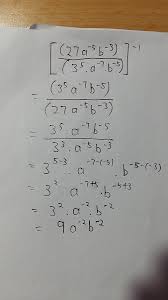 [(27a⁻⁵b⁻³)/(3⁵.a⁻⁷b⁻⁵)]⁻¹
= (3⁵.a⁻⁷b⁻⁵)/(27a⁻⁵b⁻³)
= 3⁵.a⁻⁷b⁻⁵/3³.a⁻⁵b⁻³
= 3⁵⁻³.a⁻⁷⁻⁽⁻⁵⁾.b⁻⁵⁻⁽⁻³⁾
= 3².a⁻⁷⁺⁵.b⁻⁵⁺³
= 3².a⁻².b⁻²
= 9a⁻²b⁻²